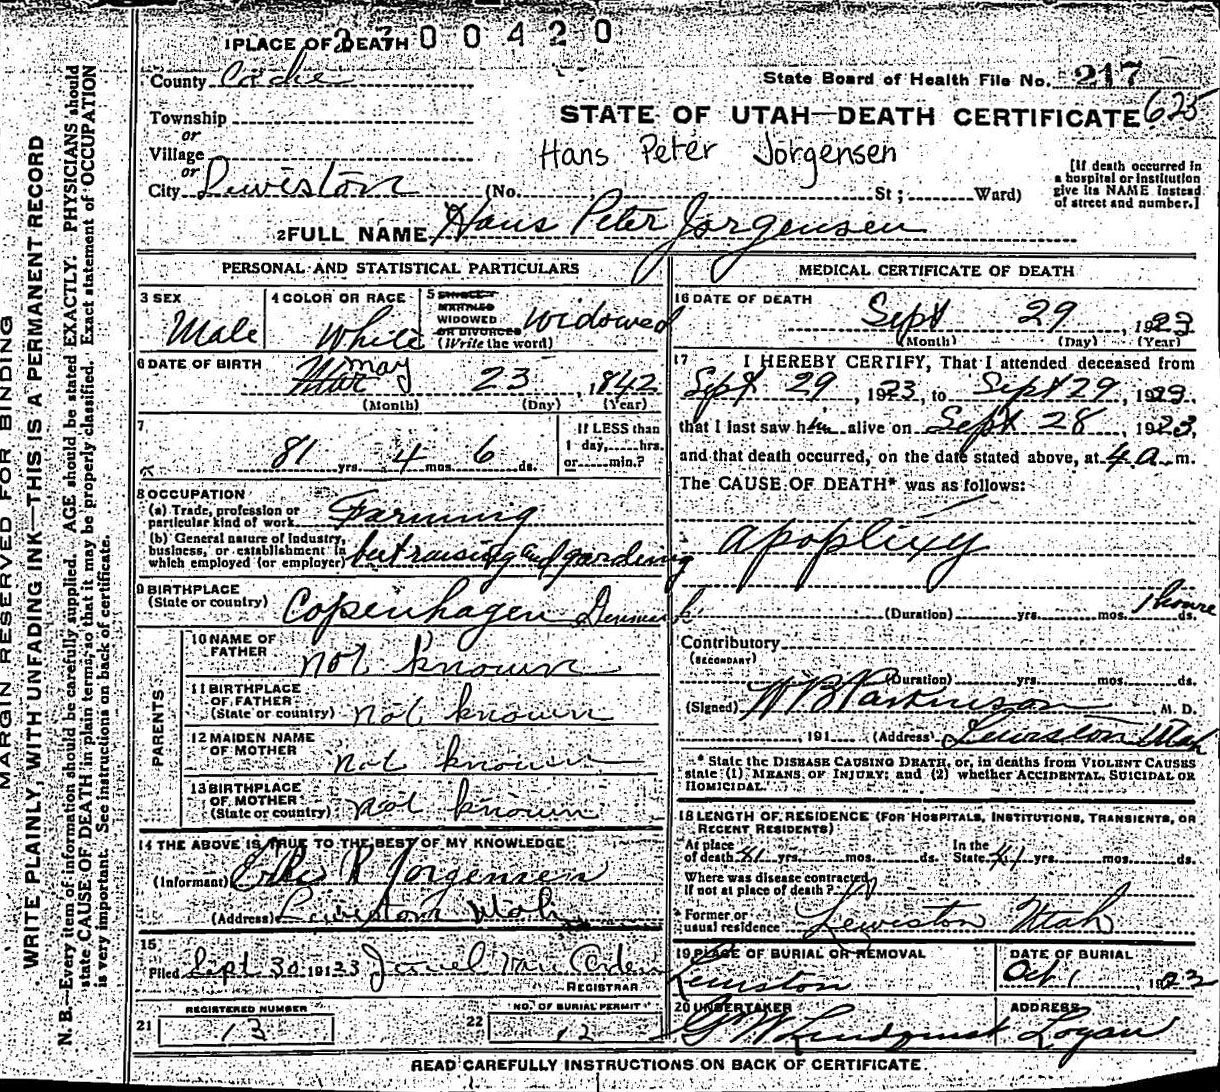 2300420
1 PLACE OF DEATH
County Cache
State Board of Health File No. 217
625
Township
or
Village
or
City Lewiston (No. St; Ward)
STATE OF UTAH—DEATH CERTIFICATE
Hans Peter Jorgensen
[If death occurred in
a hospital or institution
give its NAME instead
of street and number.]
2 FULL NAME Hans Peter Jorgensen
PERSONAL AND STATISTICAL PARTICULARS
3 SEX
Male
4 COLOR OR RACE
White
5 SINGLE
MARRIED
WIDOWED
OR DIVORCED
(Write the word)
Widowed
6 DATE OF BIRTH
May 23, 1842
(Month) (Day) (Year)
7
81 yrs. 4 mos. 6 ds.
If LESS than
1 day, hrs.
or min.?
8 OCCUPATION
(a) Trade, profession or
particular kind of work Farming
(b) General nature of industry,
business, or establishment in
which employed (or employer) beet raising and gardening
9 BIRTHPLACE
(State or country) Copenhagen Denmark
PARENTS
10 NAME OF
FATHER not known
11 BIRTHPLACE
OF FATHER
(State or country) not known
12 MAIDEN NAME
OF MOTHER not known
13 BIRTHPLACE
OF MOTHER
(State or country) not known
14 THE ABOVE IS TRUE TO THE BEST OF MY KNOWLEDGE
(Informant) R Jorgensen
(Address) Lewiston Utah
15
Filed Sept 30 19123
REGISTRAR
REGISTERED NUMBER
21 13
NO. OF BURIAL PERMIT
22 12
MEDICAL CERTIFICATE OF DEATH
16 DATE OF DEATH
Sept 29, 1923
(Month) (Day) (Year)
17 I HEREBY CERTIFY, That I attended deceased from
Sept 29, 1923, to Sept 29, 1923,
that I last saw him alive on Sept 28, 1923,
and that death occurred, on the date stated above, at 4 a m.
The CAUSE OF DEATH* was as follows:
apoplixy
(Duration) yrs. mos. ds. 1 houre
Contributory
(SECONDARY)
(Duration) yrs. mos. ds.
(Signed) W B Parkinson M. D.
, 191 (Address) Lewiston Utah
* State the DISEASE CAUSING DEATH, or, in deaths from VIOLENT CAUSES
state (1) MEANS OF INJURY; and (2) whether ACCIDENTAL, SUICIDAL OR
HOMICIDAL.
18 LENGTH OF RESIDENCE (FOR HOSPITALS, INSTITUTIONS, TRANSIENTS, OR
RECENT RESIDENTS)
At place
of death 41 yrs. mos. ds.
In the
State 41 yrs. mos. ds.
Where was disease contracted,
if not at place of death?
Former or
usual residence Lewiston Utah
19 PLACE OF BURIAL OR REMOVAL
Lewiston
DATE OF BURIAL
Oct 1, 1923
20 UNDERTAKER
G W Lindquist
ADDRESS
Logan
READ CAREFULLY INSTRUCTIONS ON BACK OF CERTIFICATE.
MARGIN RESERVED FOR BINDING
WRITE PLAINLY, WITH UNFADING INK—THIS IS A PERMANENT RECORD
N. B.—Every item of information should be carefully supplied. AGE should be stated EXACTLY. PHYSICIANS should
state CAUSE OF DEATH in plain terms, so that it may be properly classified. Exact statement of OCCUPATION
is very important. See instructions on back of certificate.